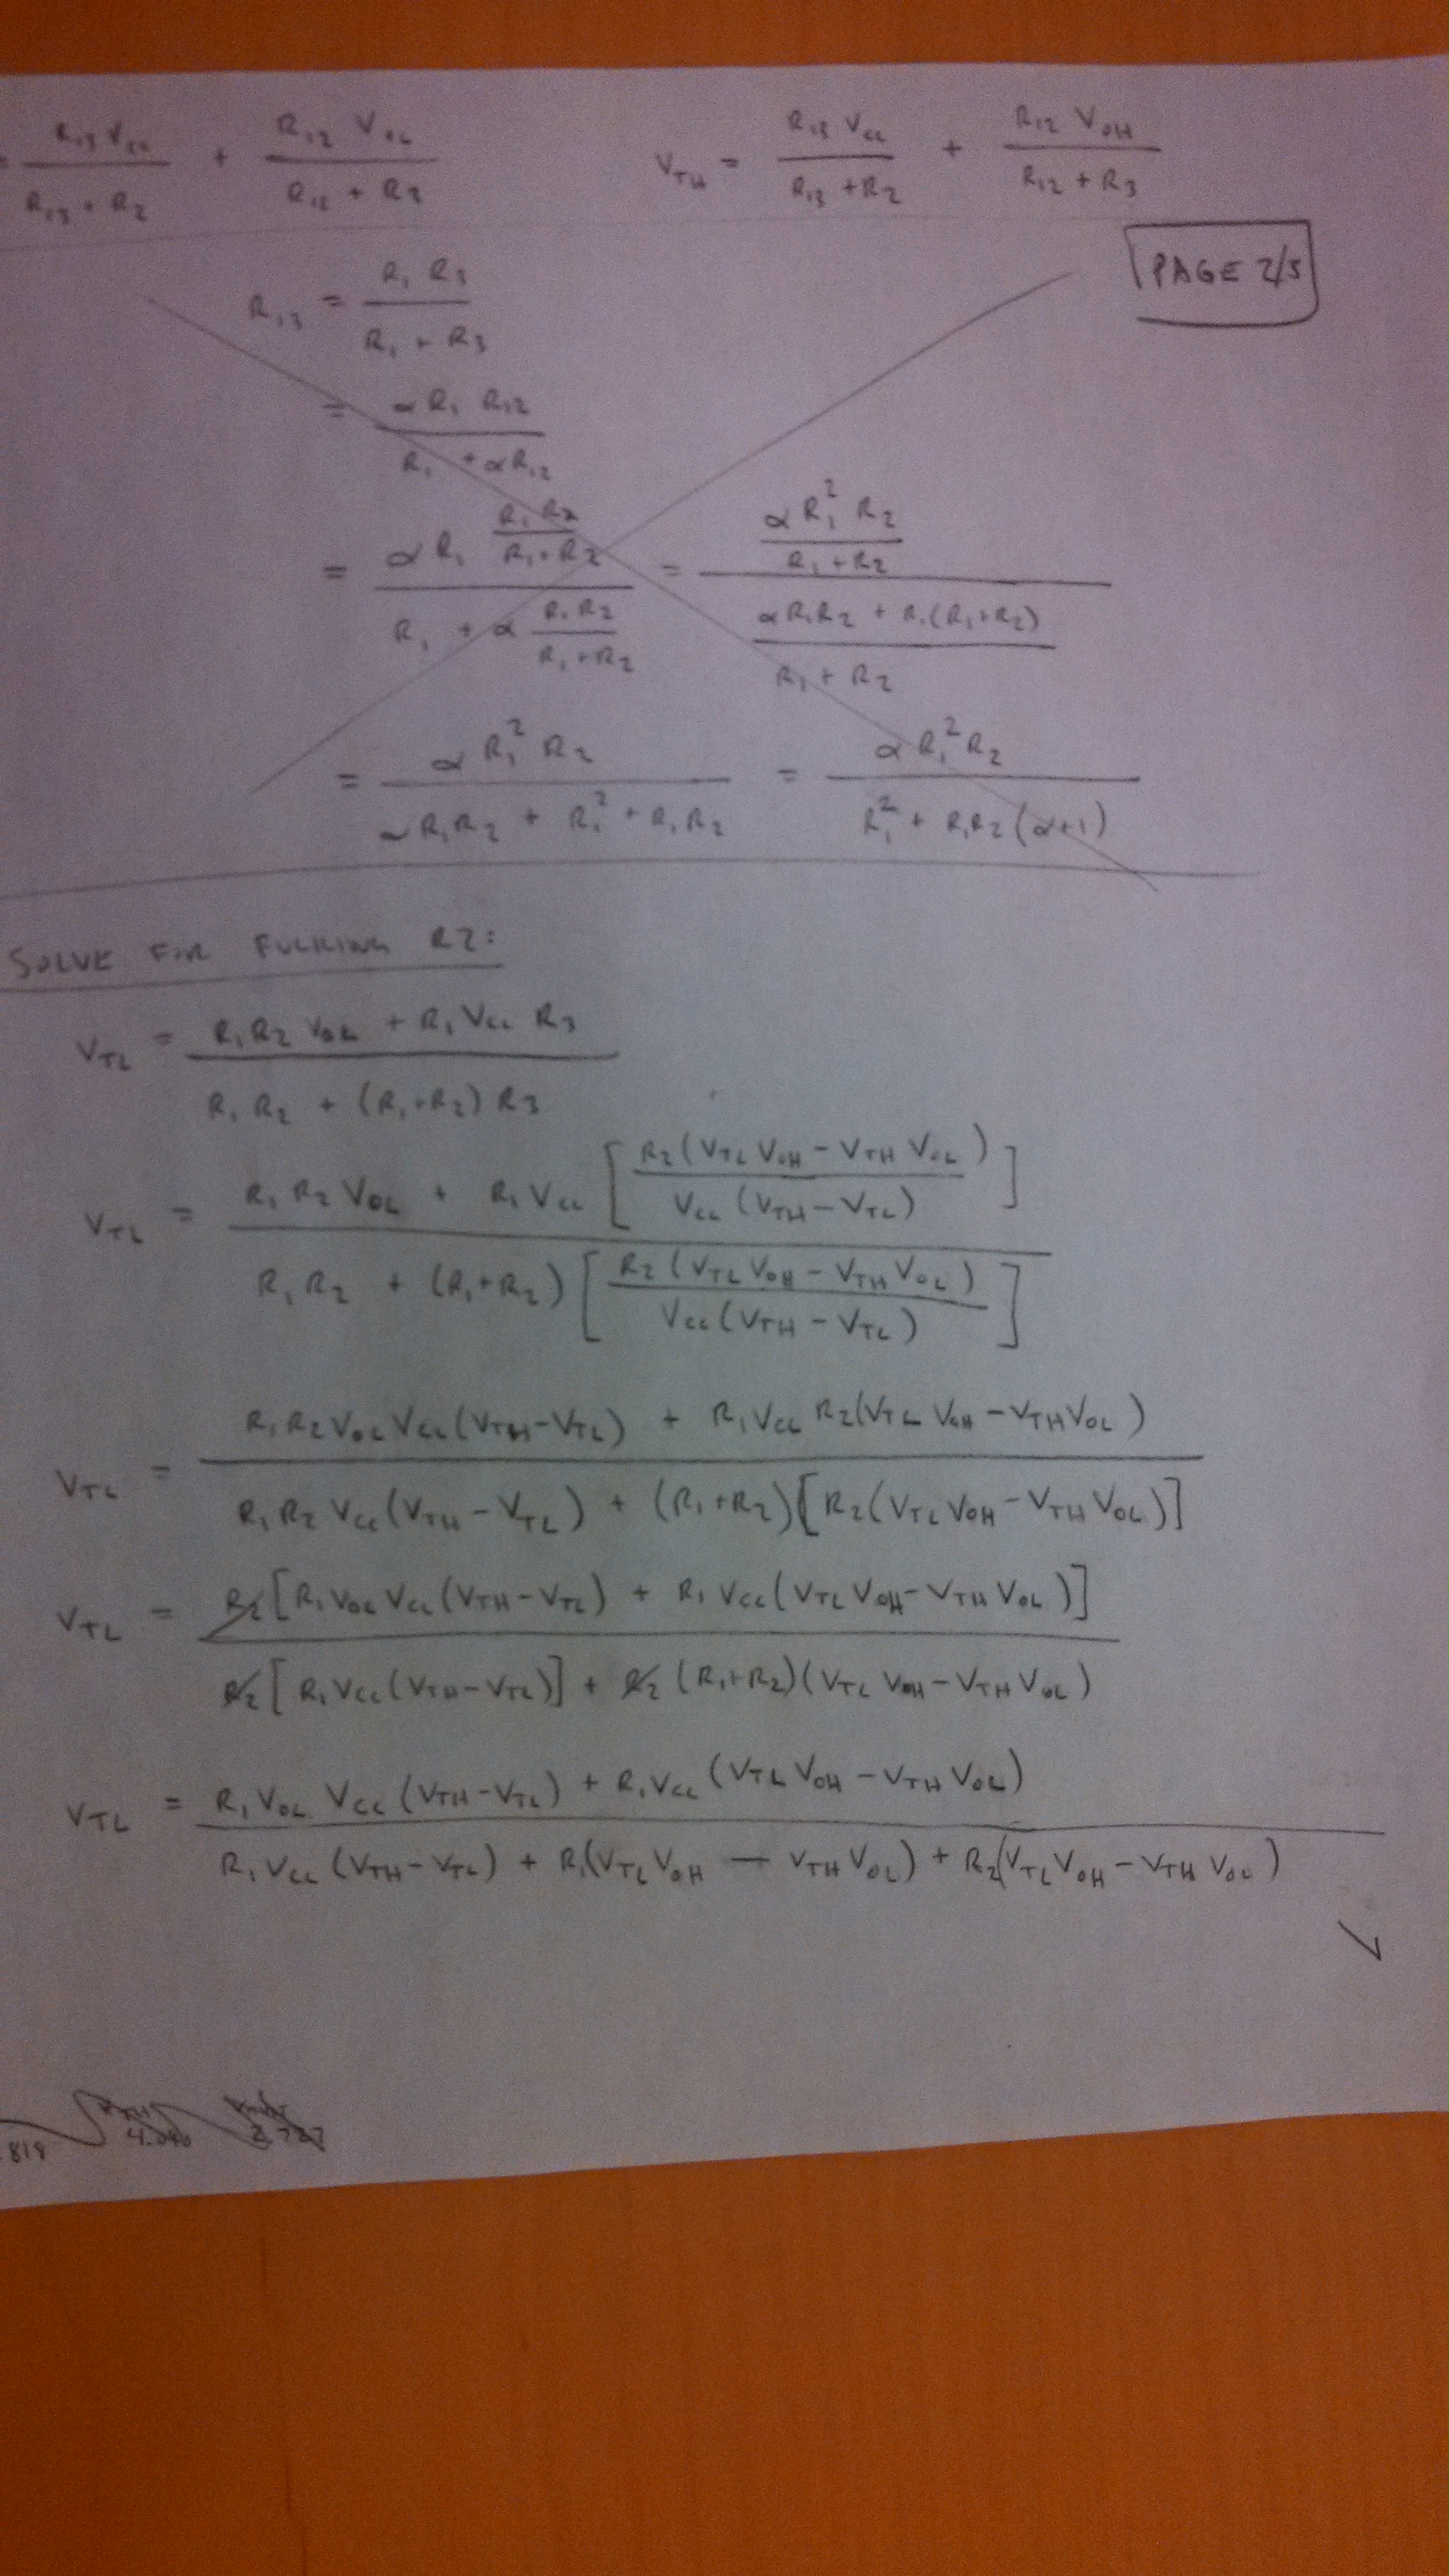 = R13 Vcc / (R13 + R2) + R12 VOL / (R12 + R3)
VTH = R13 Vcc / (R13 + R2) + R12 VOH / (R12 + R3)
PAGE 2/3
R13 = R1 R3 / (R1 + R3)
= α R1 R12 / (R1 + α R12)
= (α R1 (R1 R2 / (R1 + R2))) / (R1 + α (R1 R2 / (R1 + R2))) = (α R1² R2 / (R1 + R2)) / ((α R1R2 + R1(R1+R2)) / (R1 + R2))
= α R1² R2 / (α R1R2 + R1² + R1R2) = α R1² R2 / (R1² + R1R2(α+1))
SOLVE FOR FUCKING R2:
VTL = (R1R2 VOL + R1 Vcc R3) / (R1R2 + (R1+R2) R3)
VTL = (R1R2 VOL + R1 Vcc [R2(VTL VOH − VTH VOL) / (Vcc(VTH − VTL))]) / (R1R2 + (R1+R2)[R2(VTL VOH − VTH VOL) / (Vcc(VTH − VTL))])
VTL = (R1R2 VOL Vcc(VTH−VTL) + R1 Vcc R2(VTL VOH − VTH VOL)) / (R1R2 Vcc(VTH − VTL) + (R1+R2)[R2(VTL VOH − VTH VOL)])
VTL = R2[R1 VOL Vcc(VTH−VTL) + R1 Vcc(VTL VOH − VTH VOL)] / (R2[R1 Vcc(VTH−VTL)] + R2(R1+R2)(VTL VOH − VTH VOL))
VTL = (R1 VOL Vcc(VTH−VTL) + R1 Vcc(VTL VOH − VTH VOL)) / (R1 Vcc(VTH−VTL) + R1(VTL VOH − VTH VOL) + R2(VTL VOH − VTH VOL))
818